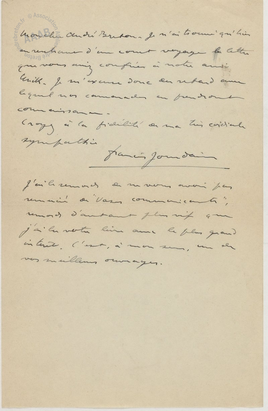 Mon cher André Breton. Je n'ai trouvé qu'hier
en rentrant d'un court voyage la lettre
que vous aviez confiée à notre ami
Unik. Je m'excuse donc du retard avec
lequel nos camarades en prendront
connaissance.
Croyez à la fidélité de ma très cordiale
sympathie
Francis Jourdain
J'ai le remords de ne vous avoir pas
remercié des Vases communicants ;
remords d'autant plus vif que
j'ai lu votre livre avec le plus grand
intérêt. C'est, à mon sens, un de
vos meilleurs ouvrages.